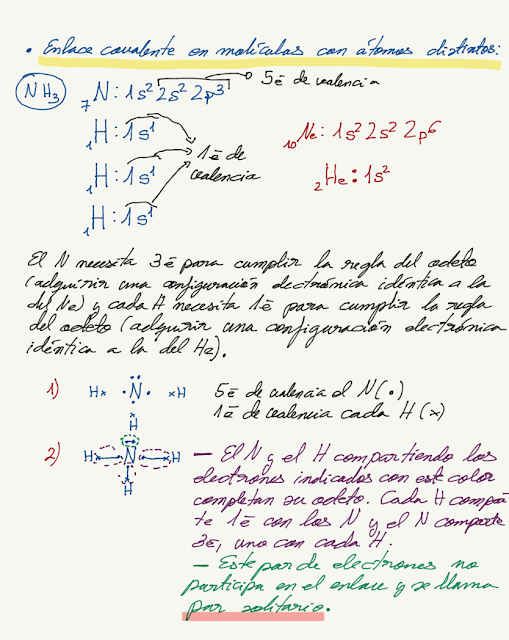 • Enlace covalente en moléculas con átomos distintos:
NH₃
₇N: 1s² 2s² 2p³ 5ē de valencia
₁H: 1s¹
₁H: 1s¹
₁H: 1s¹
1ē de
valencia
₁₀Ne: 1s² 2s² 2p⁶
₂He: 1s²
El N necesita 3ē para cumplir la regla del octeto
(adquirir una configuración electrónica idéntica a la
del Ne) y cada H necesita 1ē para cumplir la regla
del octeto (adquirir una configuración electrónica
idéntica a la del He).
1) H× ·N̈· ×H
×
H
5ē de valencia el N (•)
1ē de valencia cada H (×)
2) H N H
H
— El N y el H compartiendo los
electrones indicados con este color
completan su octeto. Cada H compar
te 1ē con los N y el N comparte
3ē, uno con cada H.
— Este par de electrones no
participa en el enlace y se llama
par solitario.